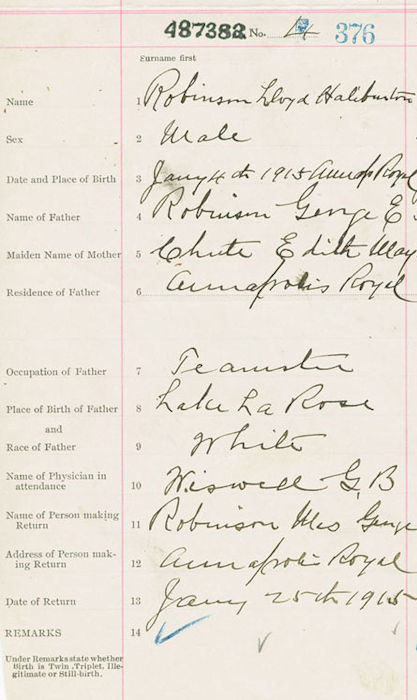 487382 No. 14 376
Surname first
Name 1 Robinson Lloyd Haliburton
Sex 2 Male
Date and Place of Birth 3 Jany 4th 1915 Annap Royal
Name of Father 4 Robinson George E.
Maiden Name of Mother 5 Chute Edith May
Residence of Father 6 Annapolis Royal
Occupation of Father 7 Teamster
Place of Birth of Father 8 Lake La Rose
and
Race of Father 9 White
Name of Physician in
attendance 10 Wiswell G. B
Name of Person making
Return 11 Robinson Mrs George
Address of Person mak-
ing Return 12 Annapolis Royal
Date of Return 13 Jany 25th 1915
REMARKS 14
Under Remarks state whether
Birth is Twin, Triplet, Ille-
gitimate or Still-birth.